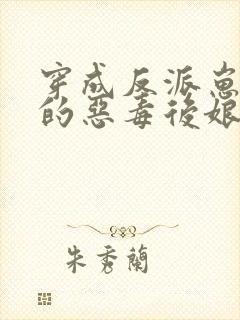 穿成反派崽
的惡毒後娘
朱秀蘭